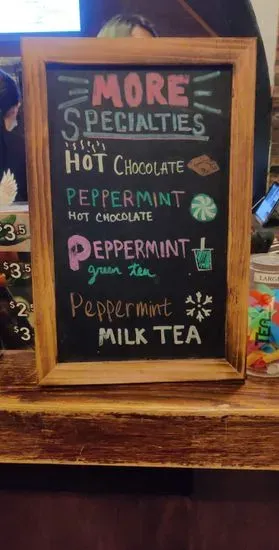 MORE
SPECIALTIES
HOT CHOCOLATE
PEPPERMINT
HOT CHOCOLATE
PEPPERMINT
green tea
Peppermint
MILK TEA
$3.5
$3.5
$2
$3
LARGE
TEA